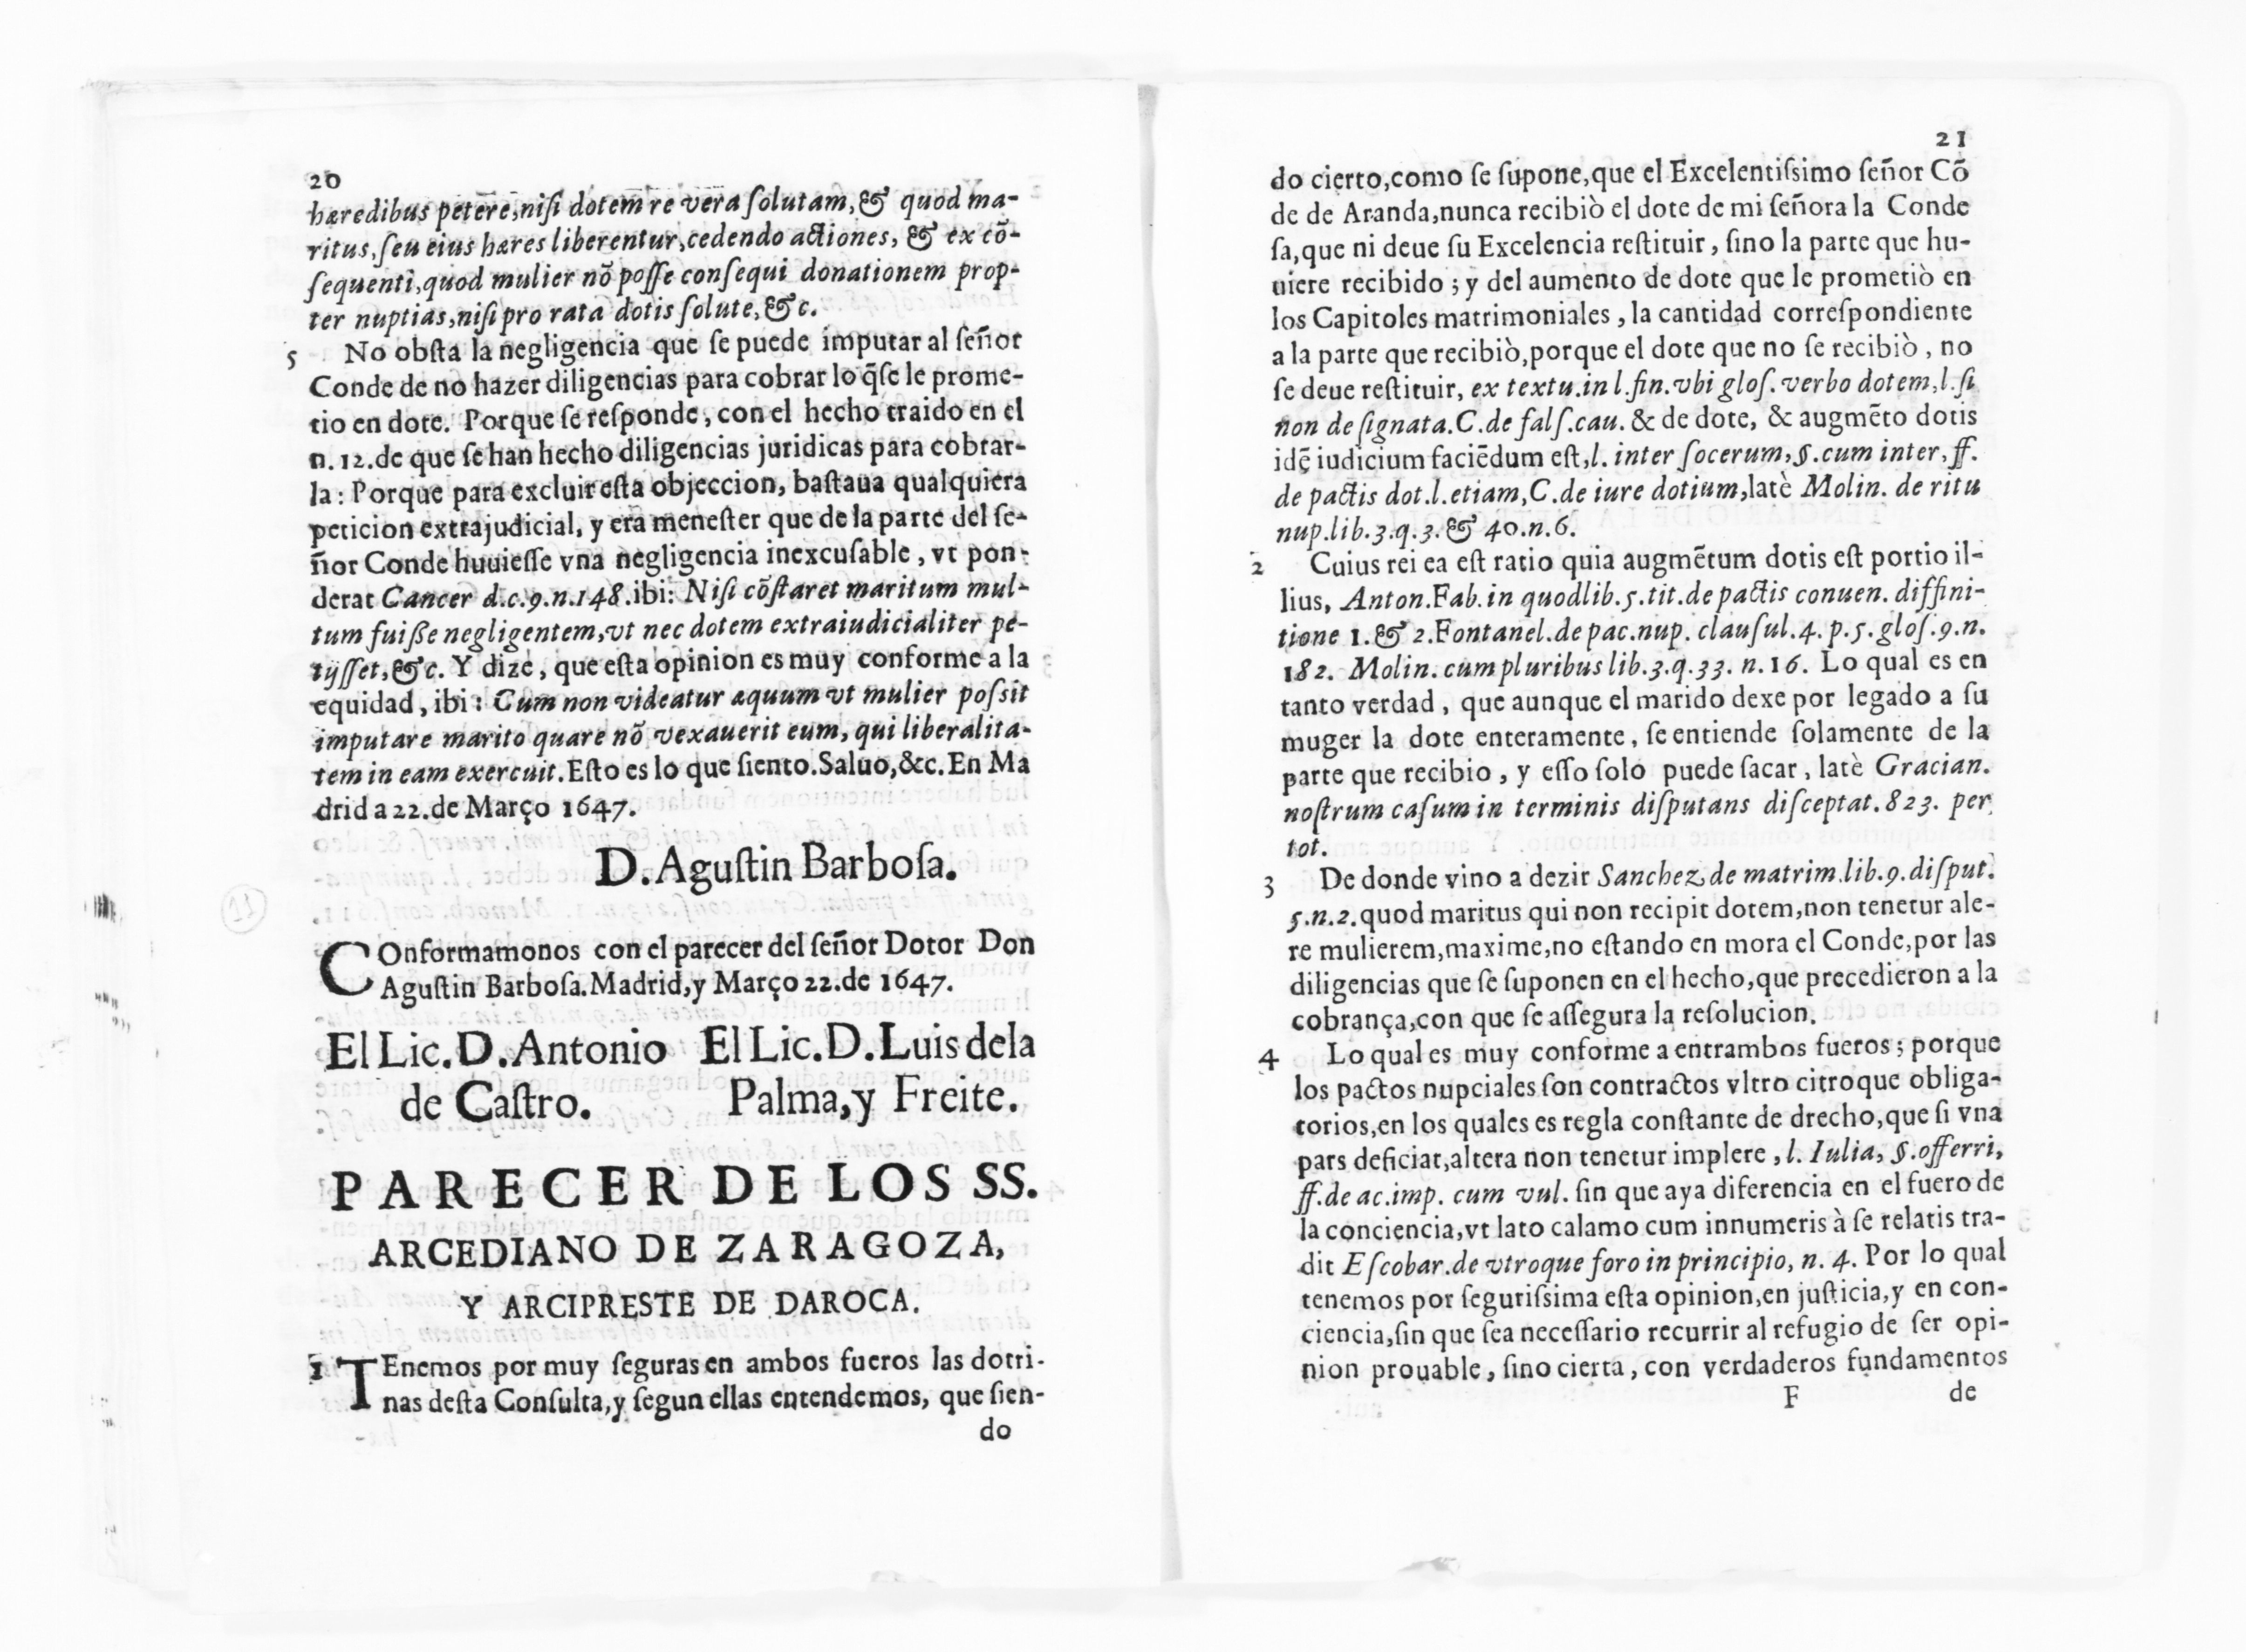 20
hæredibus petere,niſi dotem re vera ſolutam,& quod ma-
ritus,ſeu eius hæres liberentur,cedendo actiones, & ex cõ-
ſequenti,quod mulier nõ poſſe conſequi donationem prop-
ter nuptias,niſi pro rata dotis ſolute,&c.
5 No obſta la negligencia que ſe puede imputar al ſeñor
Conde de no hazer diligencias para cobrar lo q̃ſe le prome-
tio en dote. Porque ſe reſponde, con el hecho traido en el
n. 12.de que ſe han hecho diligencias juridicas para cobrar-
la: Porque para excluir eſta objeccion, baſtaua qualquiera
peticion extrajudicial, y era meneſter que de la parte del ſe-
ñor Conde huuieſſe vna negligencia inexcuſable, vt pon-
derat Cancer d.c.9.n.148.ibi: Niſi cõſtaret maritum mul-
tum fuiße negligentem,vt nec dotem extraiudicialiter pe-
tijſſet,&c. Y dize, que eſta opinion es muy conforme a la
equidad, ibi: Cum non videatur æquum vt mulier poſsit
imputare marito quare nõ vexauerit eum, qui liberalita-
tem in eam exercuit.Eſto es lo que ſiento.Saluo,&c.En Ma
drid a 22.de Março 1647.
D.Aguſtin Barboſa.
11
COnformamonos con el parecer del ſeñor Dotor Don
Aguſtin Barboſa.Madrid,y Março 22.de 1647.
El Lic.D.Antonio El Lic.D.Luis dela
de Caſtro. Palma,y Freite.
PARECER DE LOS SS.
ARCEDIANO DE ZARAGOZA,
Y ARCIPRESTE DE DAROCA.
1 TEnemos por muy ſeguras en ambos fueros las dotri-
nas deſta Conſulta,y ſegun ellas entendemos, que ſien-
do
21
do cierto,como ſe ſupone,que el Excelentiſsimo ſeñor Cõ
de de Aranda,nunca recibiò el dote de mi ſeñora la Conde
ſa,que ni deue ſu Excelencia reſtituir, ſino la parte que hu-
uiere recibido; y del aumento de dote que le prometiò en
los Capitoles matrimoniales, la cantidad correſpondiente
a la parte que recibiò,porque el dote que no ſe recibiò, no
ſe deue reſtituir, ex textu.in l.fin.vbi gloſ.verbo dotem,l.ſi
non deſignata.C.de falſ.cau. & de dote, & augmẽto dotis
idẽ iudicium faciẽdum eſt,l. inter ſocerum,§.cum inter,ff.
de pactis dot.l.etiam,C.de iure dotium,latè Molin. de ritu
nup.lib.3.q.3.& 40.n.6.
2 Cuius rei ea eſt ratio quia augmẽtum dotis eſt portio il-
lius, Anton.Fab.in quodlib.5.tit.de pactis conuen. diffini-
tione 1.& 2.Fontanel.de pac.nup. clauſul.4.p.5.gloſ.9.n.
182. Molin. cum pluribus lib.3.q.33. n.16. Lo qual es en
tanto verdad, que aunque el marido dexe por legado a ſu
muger la dote enteramente, ſe entiende ſolamente de la
parte que recibio, y eſſo ſolo puede ſacar, latè Gracian.
noſtrum caſum in terminis diſputans diſceptat.823. per
tot.
3 De donde vino a dezir Sanchez de matrim.lib.9.diſput.
5.n.2.quod maritus qui non recipit dotem,non tenetur ale-
re mulierem,maxime,no eſtando en mora el Conde,por las
diligencias que ſe ſuponen en el hecho,que precedieron a la
cobrança,con que ſe aſſegura la reſolucion.
4 Lo qual es muy conforme a entrambos fueros; porque
los pactos nupciales ſon contractos vltro citroque obliga-
torios,en los quales es regla conſtante de drecho,que ſi vna
pars deficiat,altera non tenetur implere, l. Iulia, §.offerri,
ff.de ac.imp. cum vul. ſin que aya diferencia en el fuero de
la conciencia,vt lato calamo cum innumeris à ſe relatis tra-
dit Eſcobar.de vtroque foro in principio, n. 4. Por lo qual
tenemos por ſeguriſsima eſta opinion,en juſticia,y en con-
ciencia,ſin que ſea neceſſario recurrir al refugio de ſer opi-
nion prouable, ſino cierta, con verdaderos fundamentos
F de